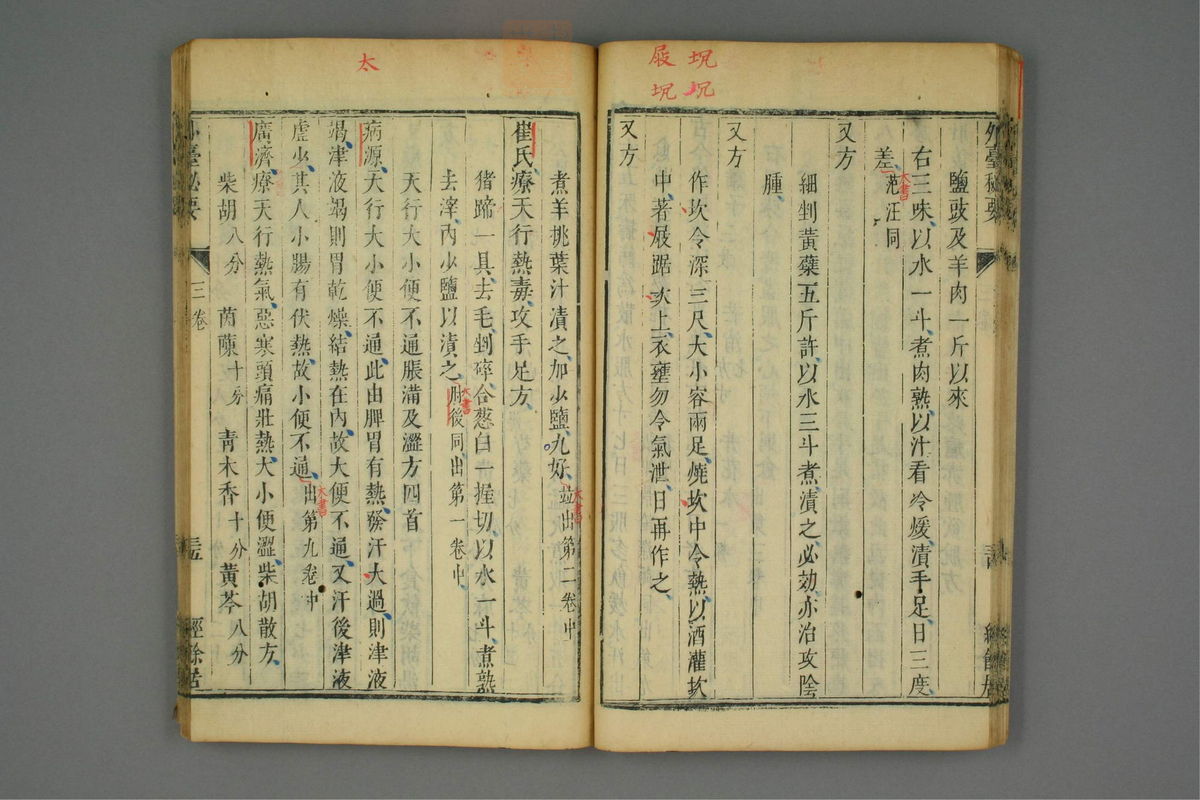 坭坭
屐坭
外臺秘要
鹽豉及羊肉一斤以來
右三味以水一斗煮肉熟以汁看冷煖漬手足日三度
差范汪同
大書
又方
細剉黃蘗五斤許以水三斗煮漬之必効亦治攻陰
腫
又方
作坎令深三尺大小容兩足燒坎中令熱以酒灌坎
中著屐踞坎上衣壅勿令氣泄日再作之
又方
太
煮羊桃葉汁漬之加少鹽尤好竝出第二卷中
大書
崔氏療天行熱毒攻手足方
猪蹄一具去毛剉碎合葱白一握切以水一斗煮熟
去滓內少鹽以漬之肘後同出第一卷中
大書
天行大小便不通脹滿及澀方四首
病源大行大小便不通此由脾胃有熱發汗大過則津液
竭津液竭則胃乾燥結熱在內故大便不通又汗後津液
虛少其人小腸有伏熱故小便不通出第九卷中
大書
廣濟療天行熱氣惡寒頭痛壯熱大小便澀柴胡散方
柴胡八分 茵蔯十分 青木香十分 黃芩八分
外臺秘要
三卷
經餘居